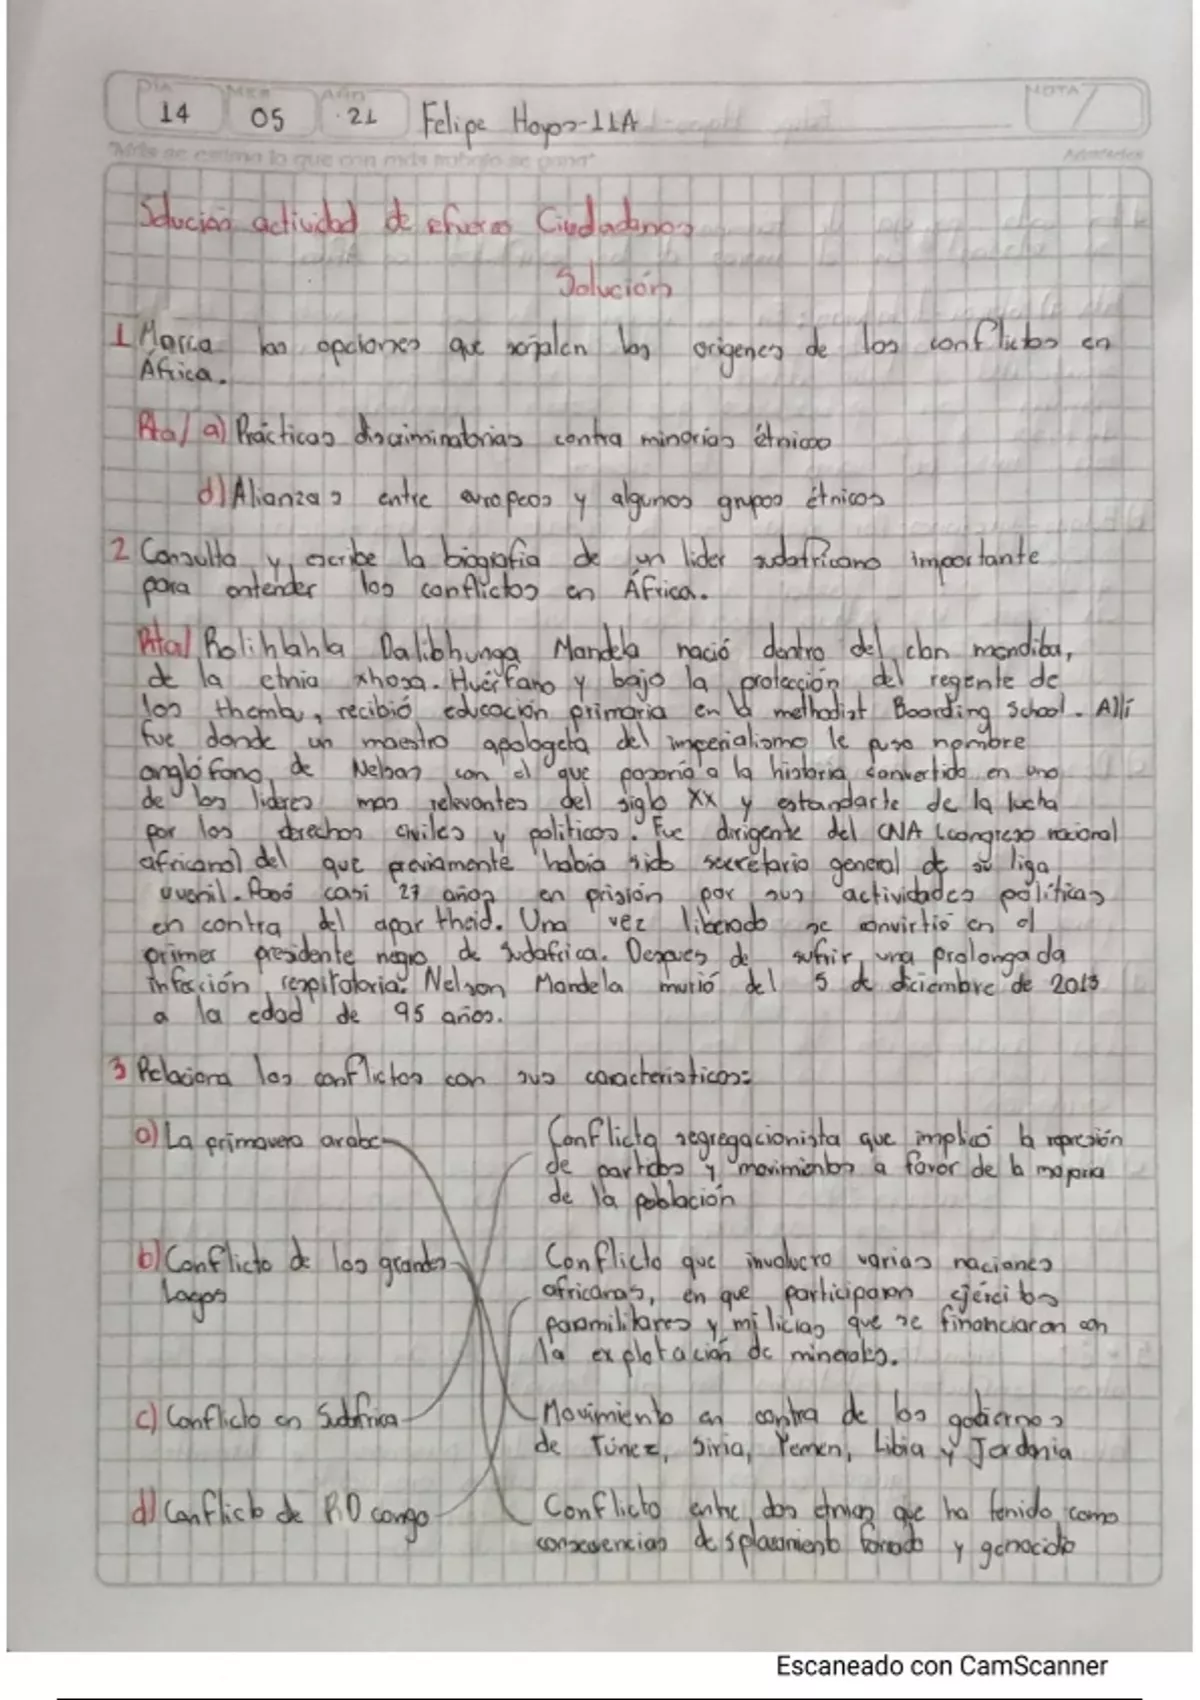 DIA MES AÑO NOTA
14 05 21 Felipe Hoyos-11A
Solución actividad de Ciudadanos
Solución
1 Marca las opciones que señalen los origenes de los conflictos en
África.
Rta/ a) Prácticas discriminatorias contra minorias étnicas
d) Alianzas entre europeos y algunos grupos étnicos
2 Consulta y escribe la biografia de un lider sudafricano importante
para entender los conflictos en África.
Rta/ Rolihlahla Dalibhunga Mandela nació dentro del clan mandiba,
de la etnia xhosa. Huérfano y bajo la protección del regente de
los thembu, recibió educación primaria en la methodist Boarding School. Allí
fue donde un maestro apologeta del imperialismo le puso nombre
anglófono, de Nelson con el que pasaria a la historia convertido en uno
de los lideres mas relevantes del siglo XX y estandarte de la lucha
por los derechos civiles y politicos. Fue dirigente del CNA (congreso nacional
africano) del que previamente habia sido secretario general de su liga
uvenil. Pasó casi 27 años en prisión por sus actividades políticas
en contra del apar theid. Una vez liberado se convirtió en el
primer presidente negro de Sudafrica. Despues de sufrir una prolongada
infección respiratoria. Nelson Mandela murió del 5 de diciembre de 2013
a la edad de 95 años.
3 Relaciona los conflictos con sus caracteristicas:
a) La primavera arabe
Conflicto segregacionista que implicó la represión
de partidos y movimientos a favor de la mayoria
de la población
b) Conflicto de los grandes
Lagos
Conflicto que involucro varias naciones
africanas, en que participaron ejércitos
paramilitares y milicias que se financiaron con
la explotación de minerales.
c) Conflicto en Sudafrica
Movimiento en contra de los gobiernos
de Túnez, Siria, Yemen, Libia y Jordania
d) Conflicto de RD congo
Conflicto entre dos etnias que ha tenido como
consecuencias desplazamiento forzado y genocidio
Escaneado con CamScanner